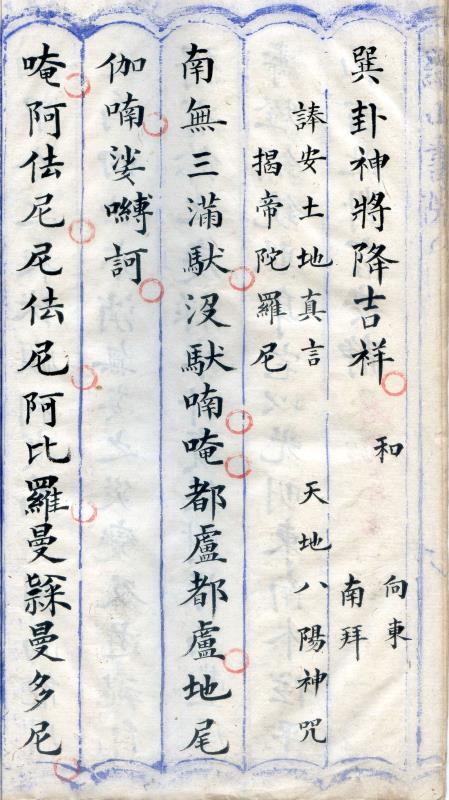 巽卦神將降吉祥 和 向東南拜
諃安土地真言 天地八陽神咒
揭帝陀羅尼
南無三滿馱沒馱喃唵都盧都盧地尾
伽喃娑嚩訶
唵阿佉尼尼佉尼阿比羅曼隸曼多尼